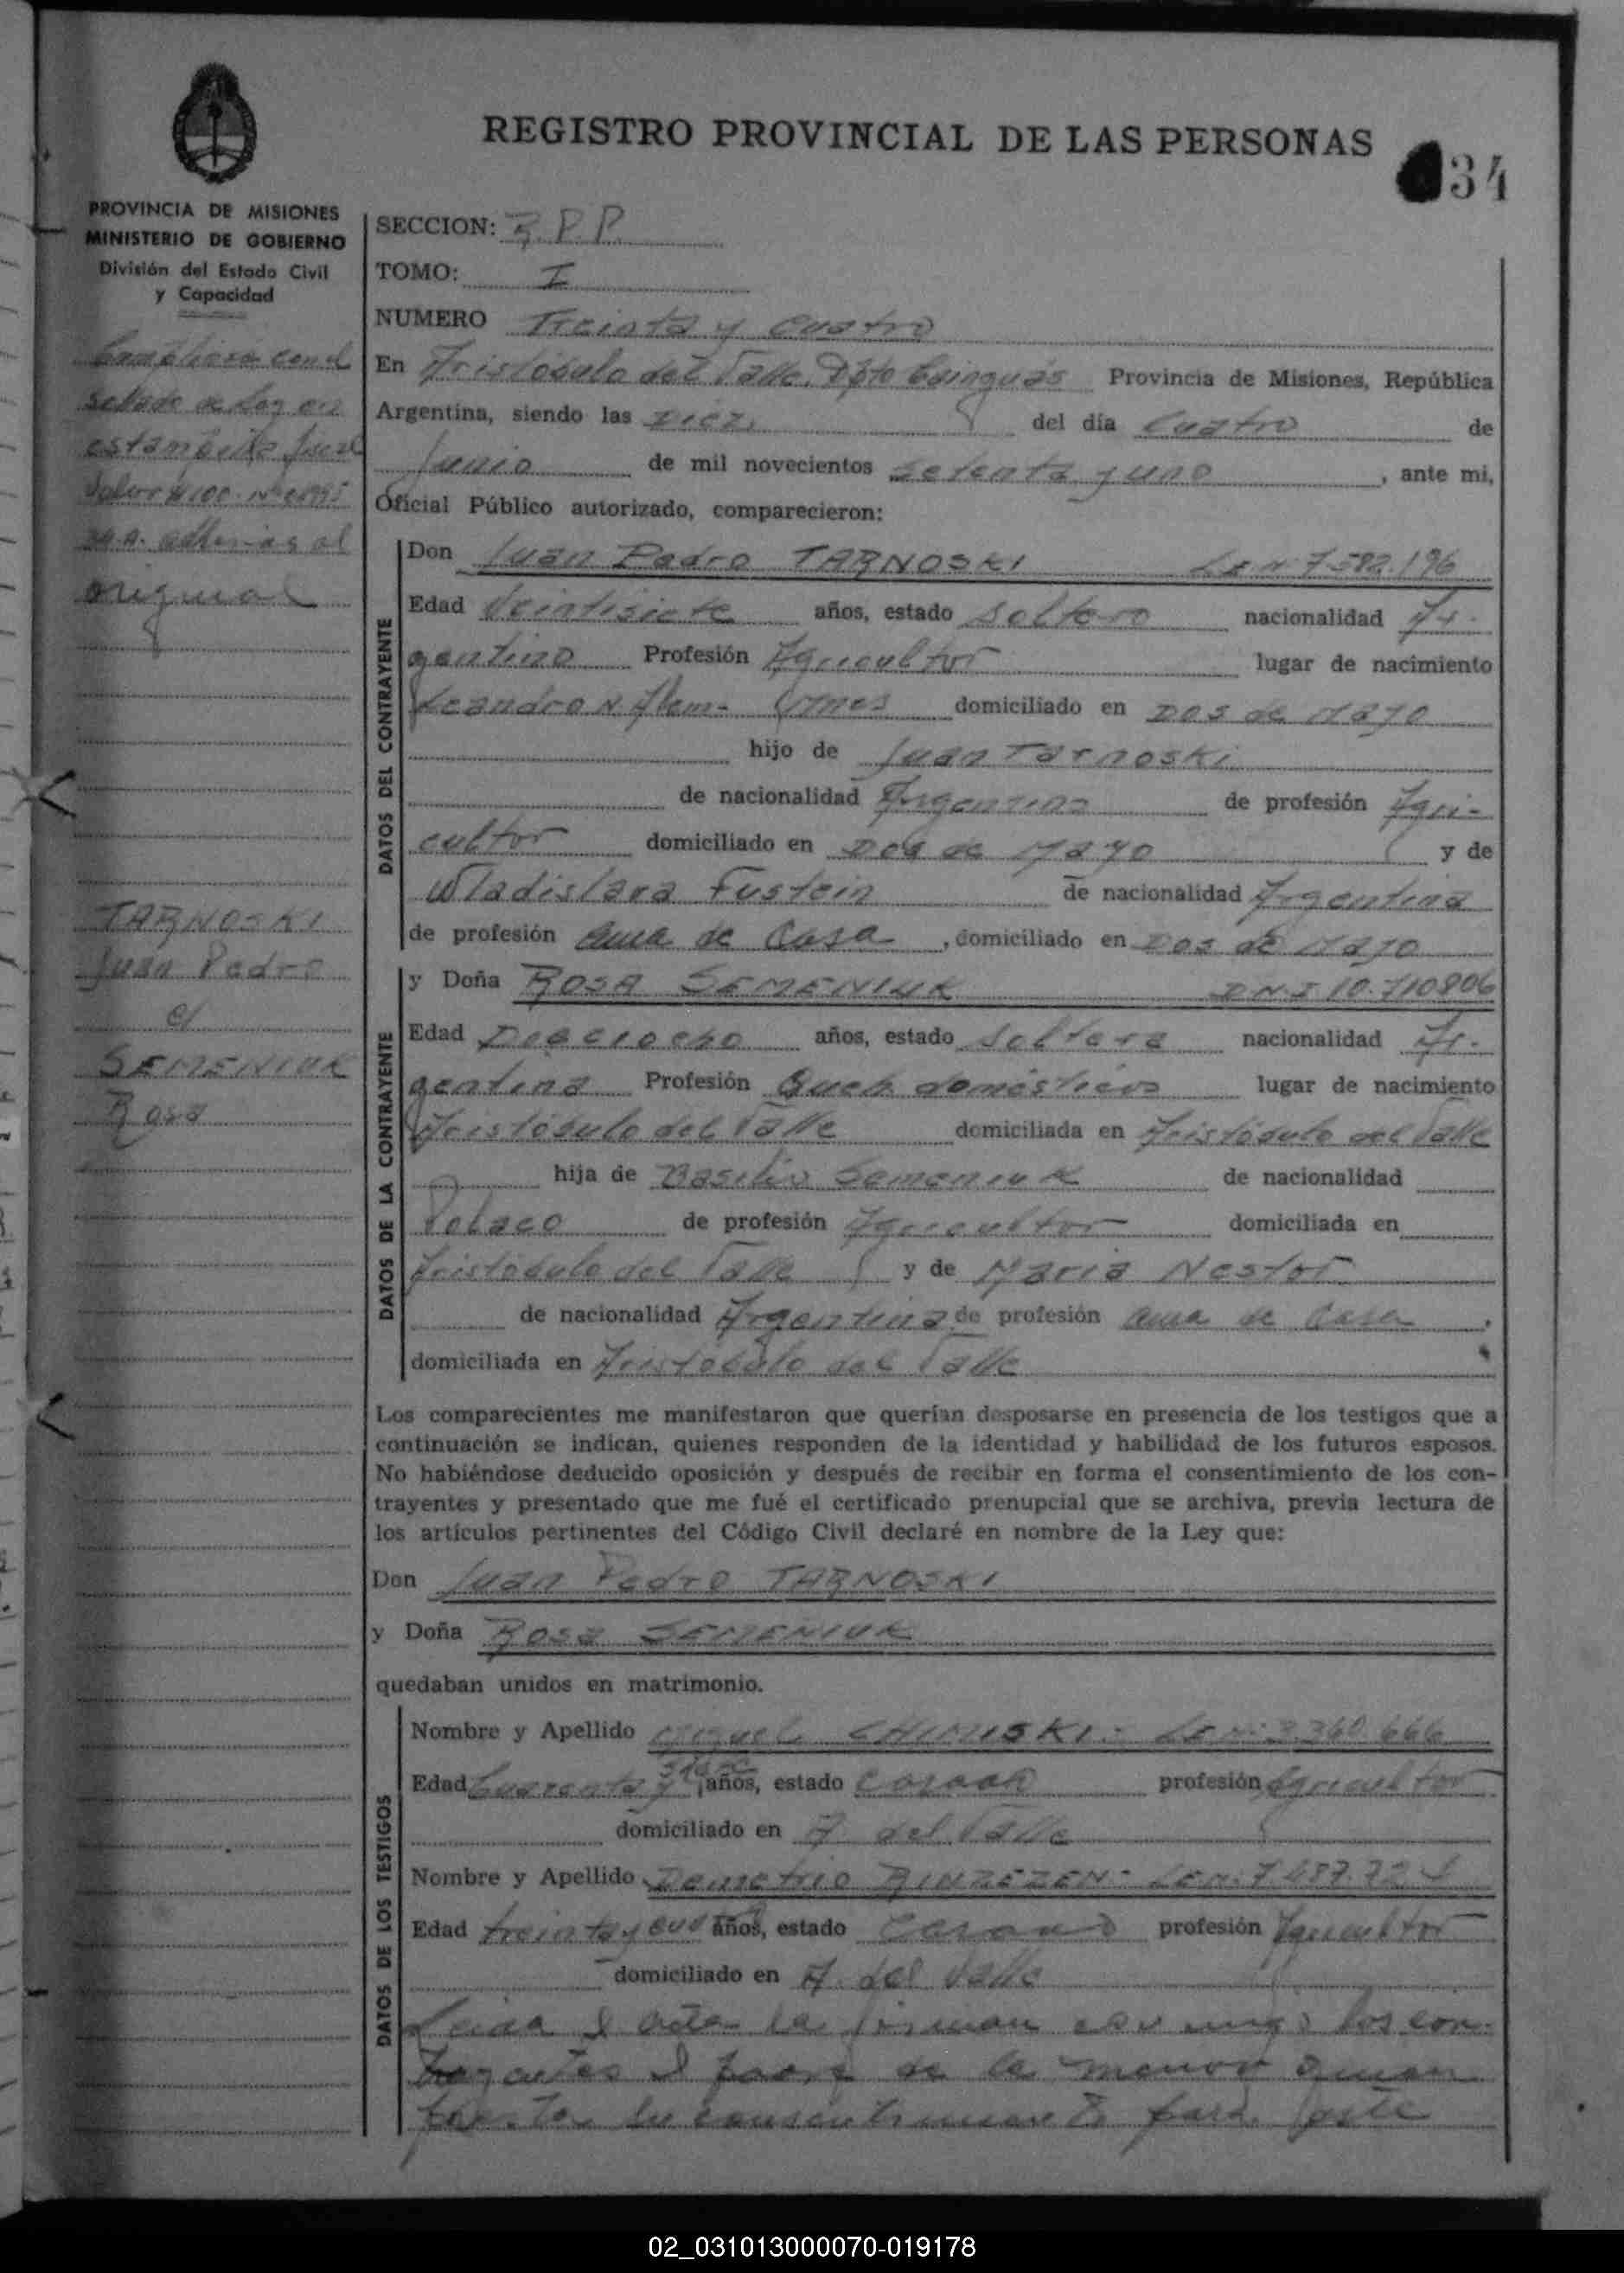 REGISTRO PROVINCIAL DE LAS PERSONAS
34
PROVINCIA DE MISIONES
MINISTERIO DE GOBIERNO
División del Estado Civil
y Capacidad
estampilla fiscal
original
TARNOSKI
Juan Pedro
c/
SEMENIUK
Rosa
SECCION: R.P.P.
TOMO: I
NUMERO Treinta y Cuatro
En Aristóbulo del Valle, Dpto Cainguás Provincia de Misiones, República
Argentina, siendo las Diez del día Cuatro de
Junio de mil novecientos setenta y uno, ante mi,
Oficial Público autorizado, comparecieron:
DATOS DEL CONTRAYENTE
Don Juan Pedro TARNOSKI L.E.N. 7.582.196
Edad Veintisiete años, estado soltero nacionalidad Ar-
gentino Profesión Agricultor lugar de nacimiento
Leandro N. Alem- Mnes domiciliado en Dos de Mayo
hijo de Juan Tarnoski
de nacionalidad Argentina de profesión Agri-
cultor domiciliado en Dos de Mayo y de
Wladislava Fustein de nacionalidad Argentina
de profesión ama de Casa, domiciliado en Dos de Mayo
DATOS DE LA CONTRAYENTE
y Doña ROSA SEMENIUK D.N.I 10.710806
Edad Dieciocho años, estado soltera nacionalidad Ar-
gentina Profesión Queh. domésticos lugar de nacimiento
Aristóbulo del Valle domiciliada en Aristóbulo del Valle
hija de Basilio Semeniuk de nacionalidad
Polaco de profesión Agricultor domiciliada en
Aristóbulo del Valle y de Maria Nestor
de nacionalidad Argentina de profesión ama de Casa,
domiciliada en Aristóbulo del Valle
Los comparecientes me manifestaron que querían desposarse en presencia de los testigos que a
continuación se indican, quienes responden de la identidad y habilidad de los futuros esposos.
No habiéndose deducido oposición y después de recibir en forma el consentimiento de los con-
trayentes y presentado que me fué el certificado prenupcial que se archiva, previa lectura de
los artículos pertinentes del Código Civil declaré en nombre de la Ley que:
Don Juan Pedro TARNOSKI
y Doña Rosa SEMENIUK
quedaban unidos en matrimonio.
DATOS DE LOS TESTIGOS
Nombre y Apellido Miguel CHIMISKI- L.E.N: 3.360.666
Edad Cuarenta y siete años, estado Casado profesión Agricultor
domiciliado en A. del Valle
Nombre y Apellido Demetrio L.E.N: 7.487.724
Edad treinta y años, estado Casado profesión Agricultor
domiciliado en A. del Valle
Leida el acta la firman con migo los con-
trayentes el padre de la menor quien
presta su consentimiento para este
02_031013000070-019178